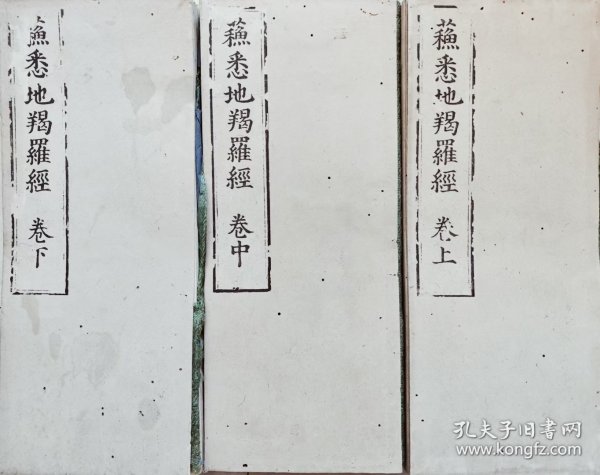 蘓悉地羯羅經 卷上
蘓悉地羯羅經 卷中
蘓悉地羯羅經 卷下
孔夫子旧书网
www.kongfz.com